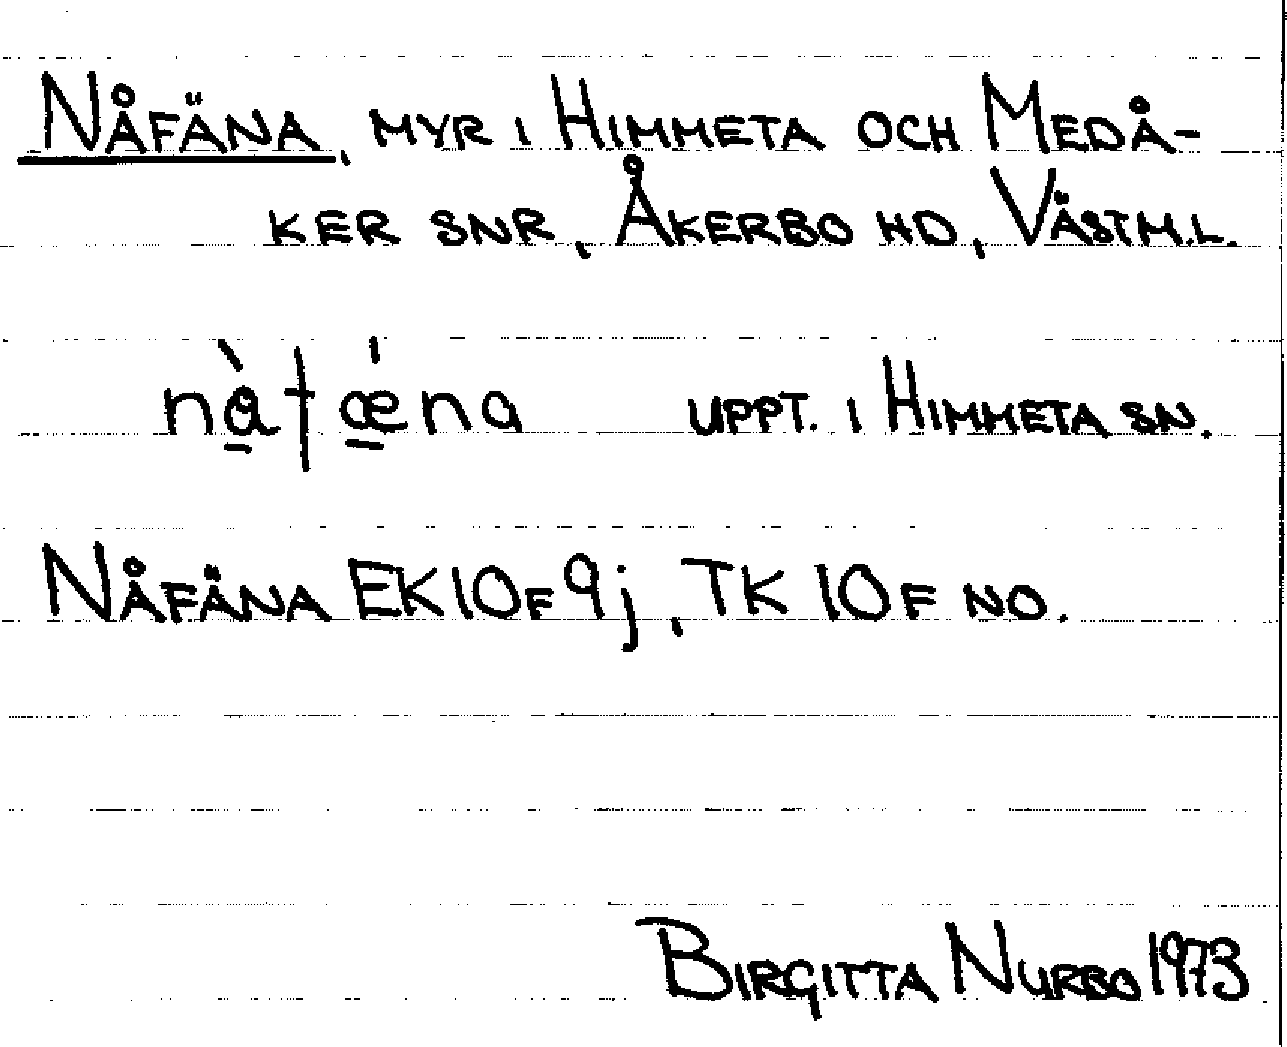 NÅFÄNA, MYR I HIMMETA OCH MEDÅ-
KER SNR, ÅKERBO HD, VÄSTM.L.
nå̱̀fǽ̱na UPPT. I HIMMETA SN.
NÅFÄNA EK10F9j, TK 10F NO.
BIRGITTA NURBO 1973